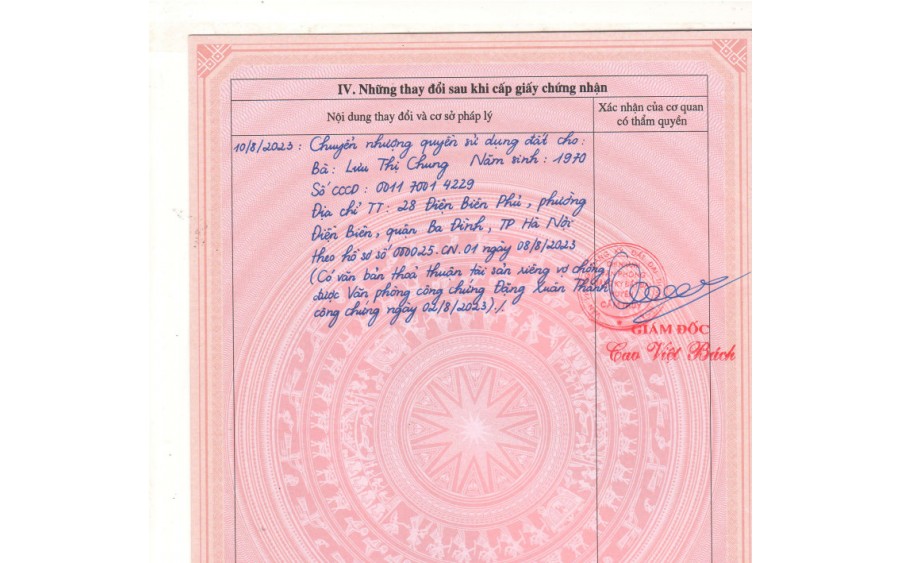 IV. Những thay đổi sau khi cấp giấy chứng nhận
Nội dung thay đổi và cơ sở pháp lý
Xác nhận của cơ quan
có thẩm quyền
10/8/2023: Chuyển nhượng quyền sử dụng đất cho:
Bà: Lưu Thị Chung Năm sinh: 1970
Số CCCD: 0011 7001 4229
Địa chỉ TT: 28 Điện Biên Phủ, phường
Điện Biên, quận Ba Đình, TP Hà Nội
theo hồ sơ số 000025.CN.01 ngày 08/8/2023
(Có văn bản thoả thuận tài sản riêng vợ chồng
được Văn phòng công chứng Đặng Xuân Thanh
công chứng ngày 02/8/2023)./.
GIÁM ĐỐC
Cao Việt Bách